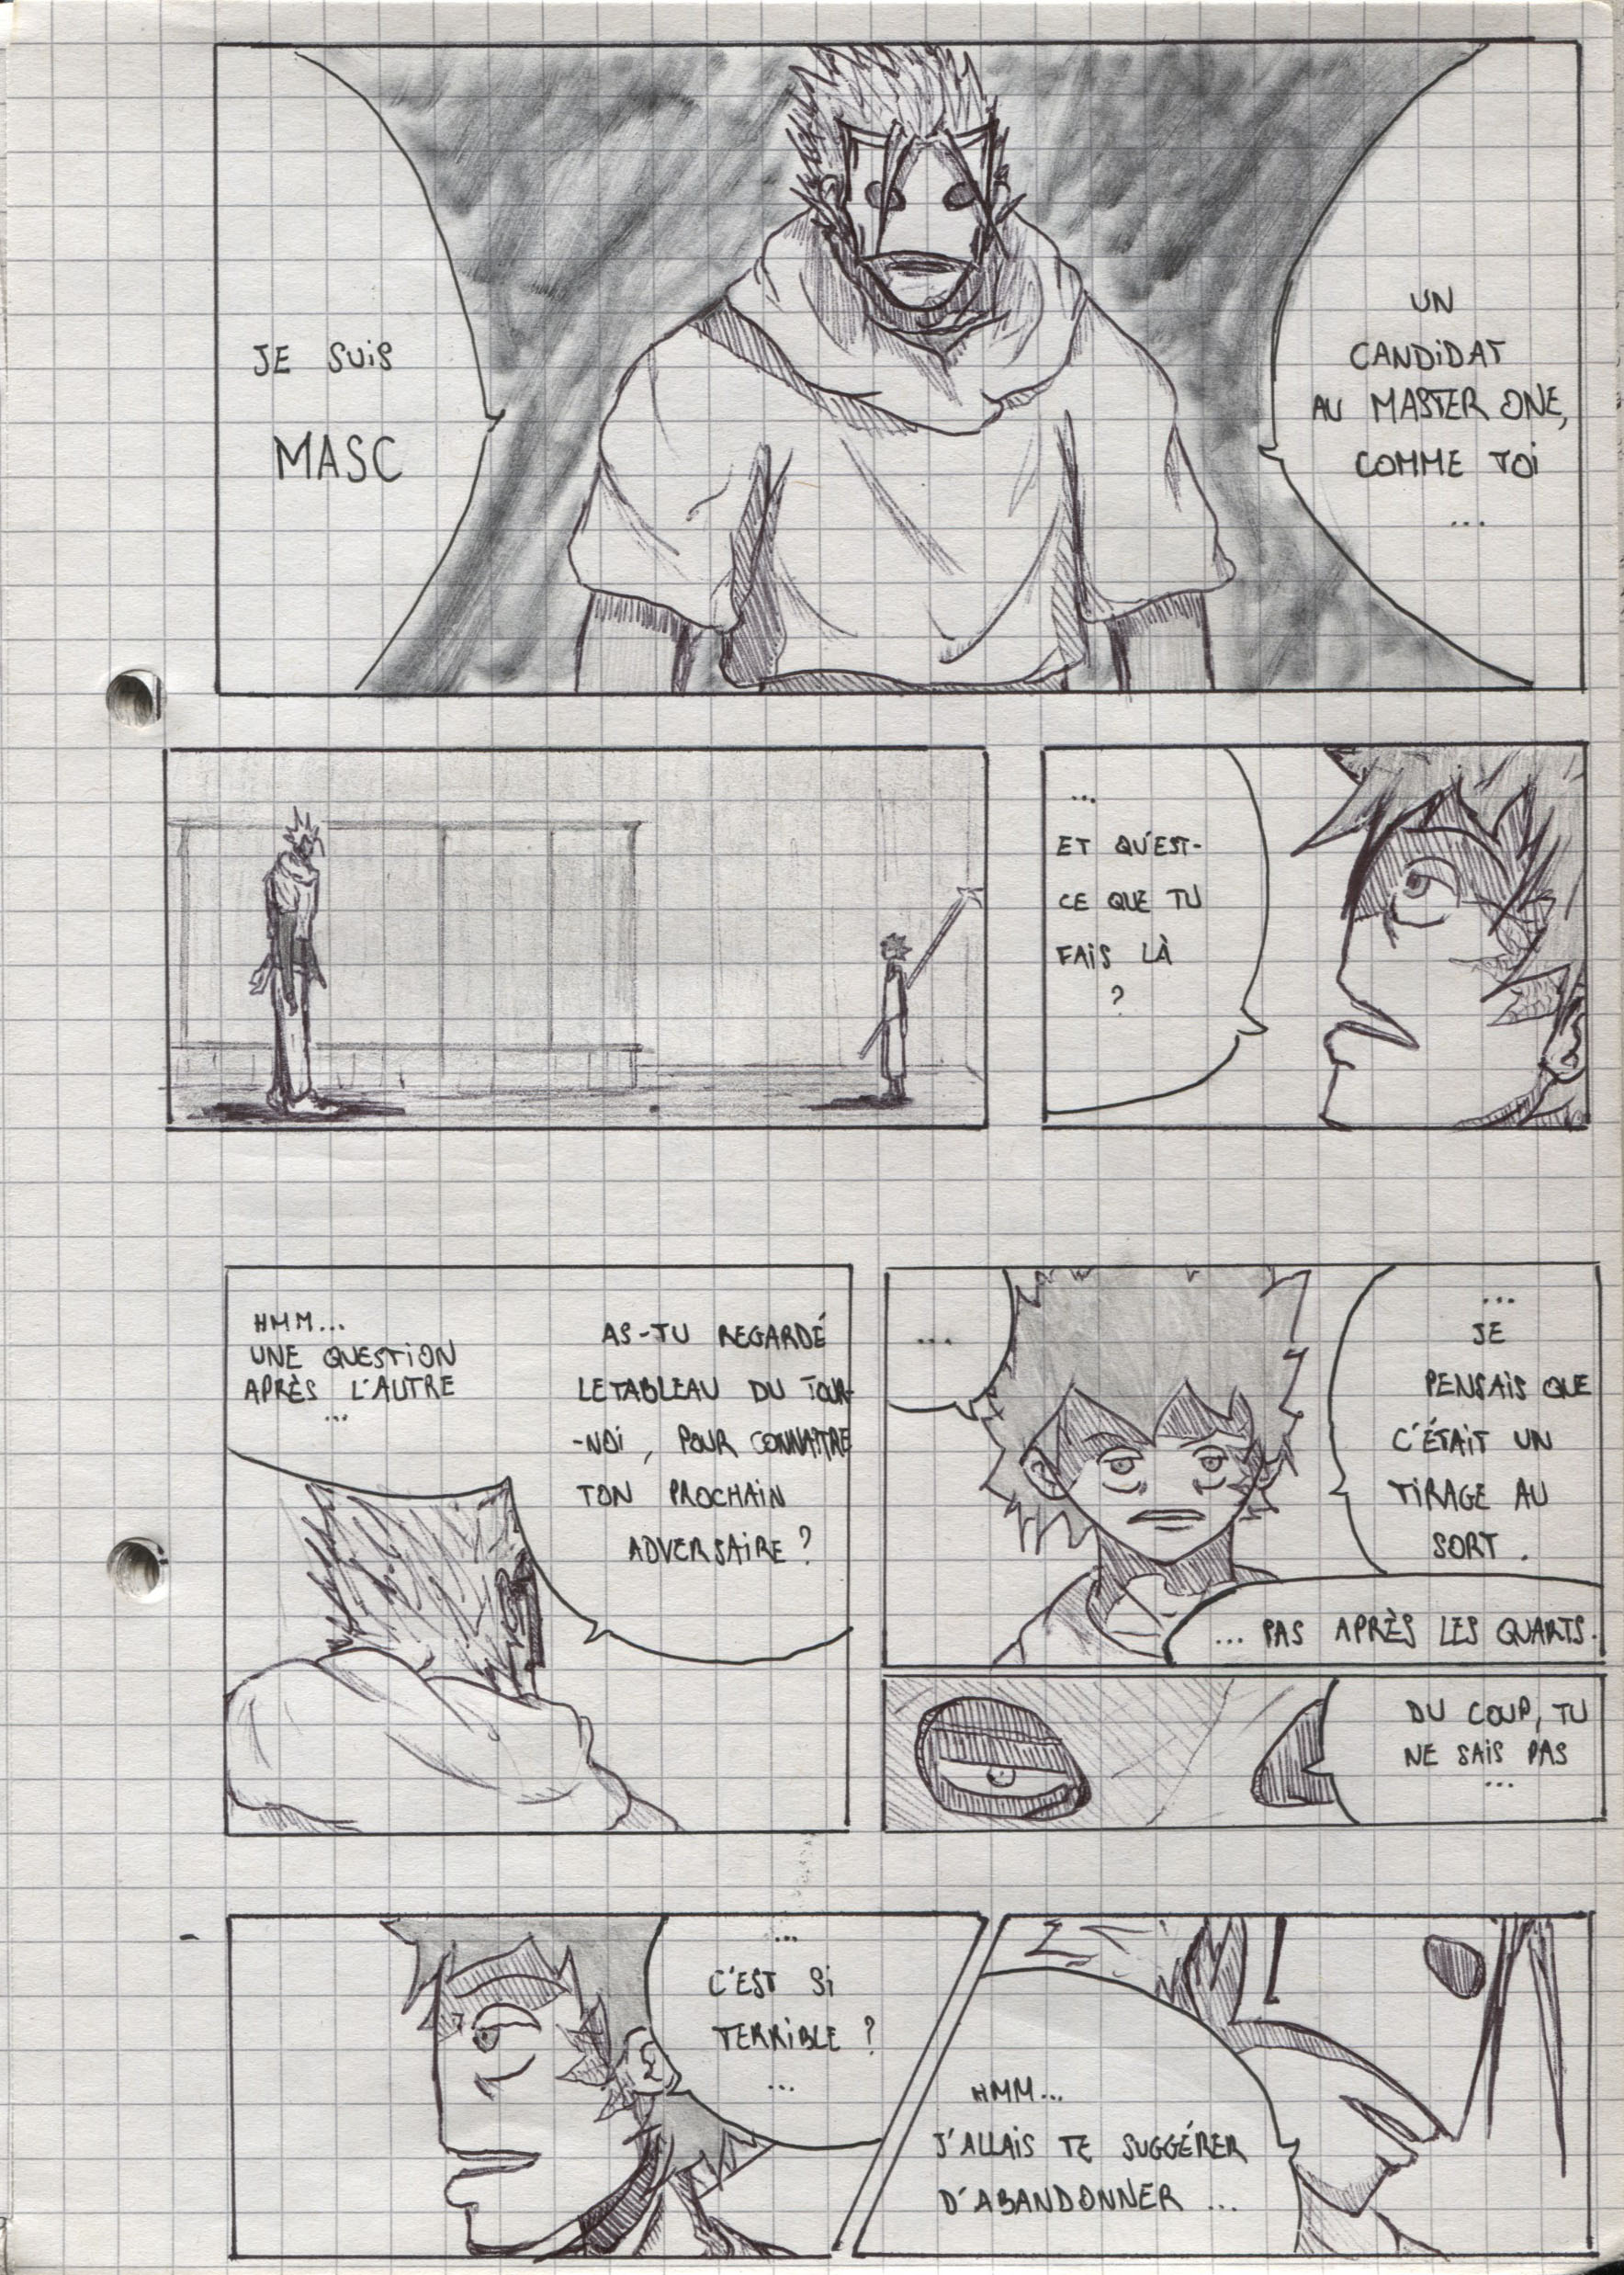 JE SUIS
MASC
UN
CANDIDAT
AU MASTER ONE,
COMME TOI
...
...
ET QU'EST-
CE QUE TU
FAIS LÀ
?
HMM...
UNE QUESTION
APRÈS L'AUTRE
...
AS-TU REGARDÉ
LE TABLEAU DU TOUR-
-NOI, POUR CONNAITRE
TON PROCHAIN
ADVERSAIRE ?
...
...
JE
PENSAIS QUE
C'ÉTAIT UN
TIRAGE AU
SORT.
... PAS APRÈS LES QUARTS.
DU COUP, TU
NE SAIS PAS
...
...
C'EST SI
TERRIBLE ?
...
HMM...
J'ALLAIS TE SUGGÉRER
D'ABANDONNER ...